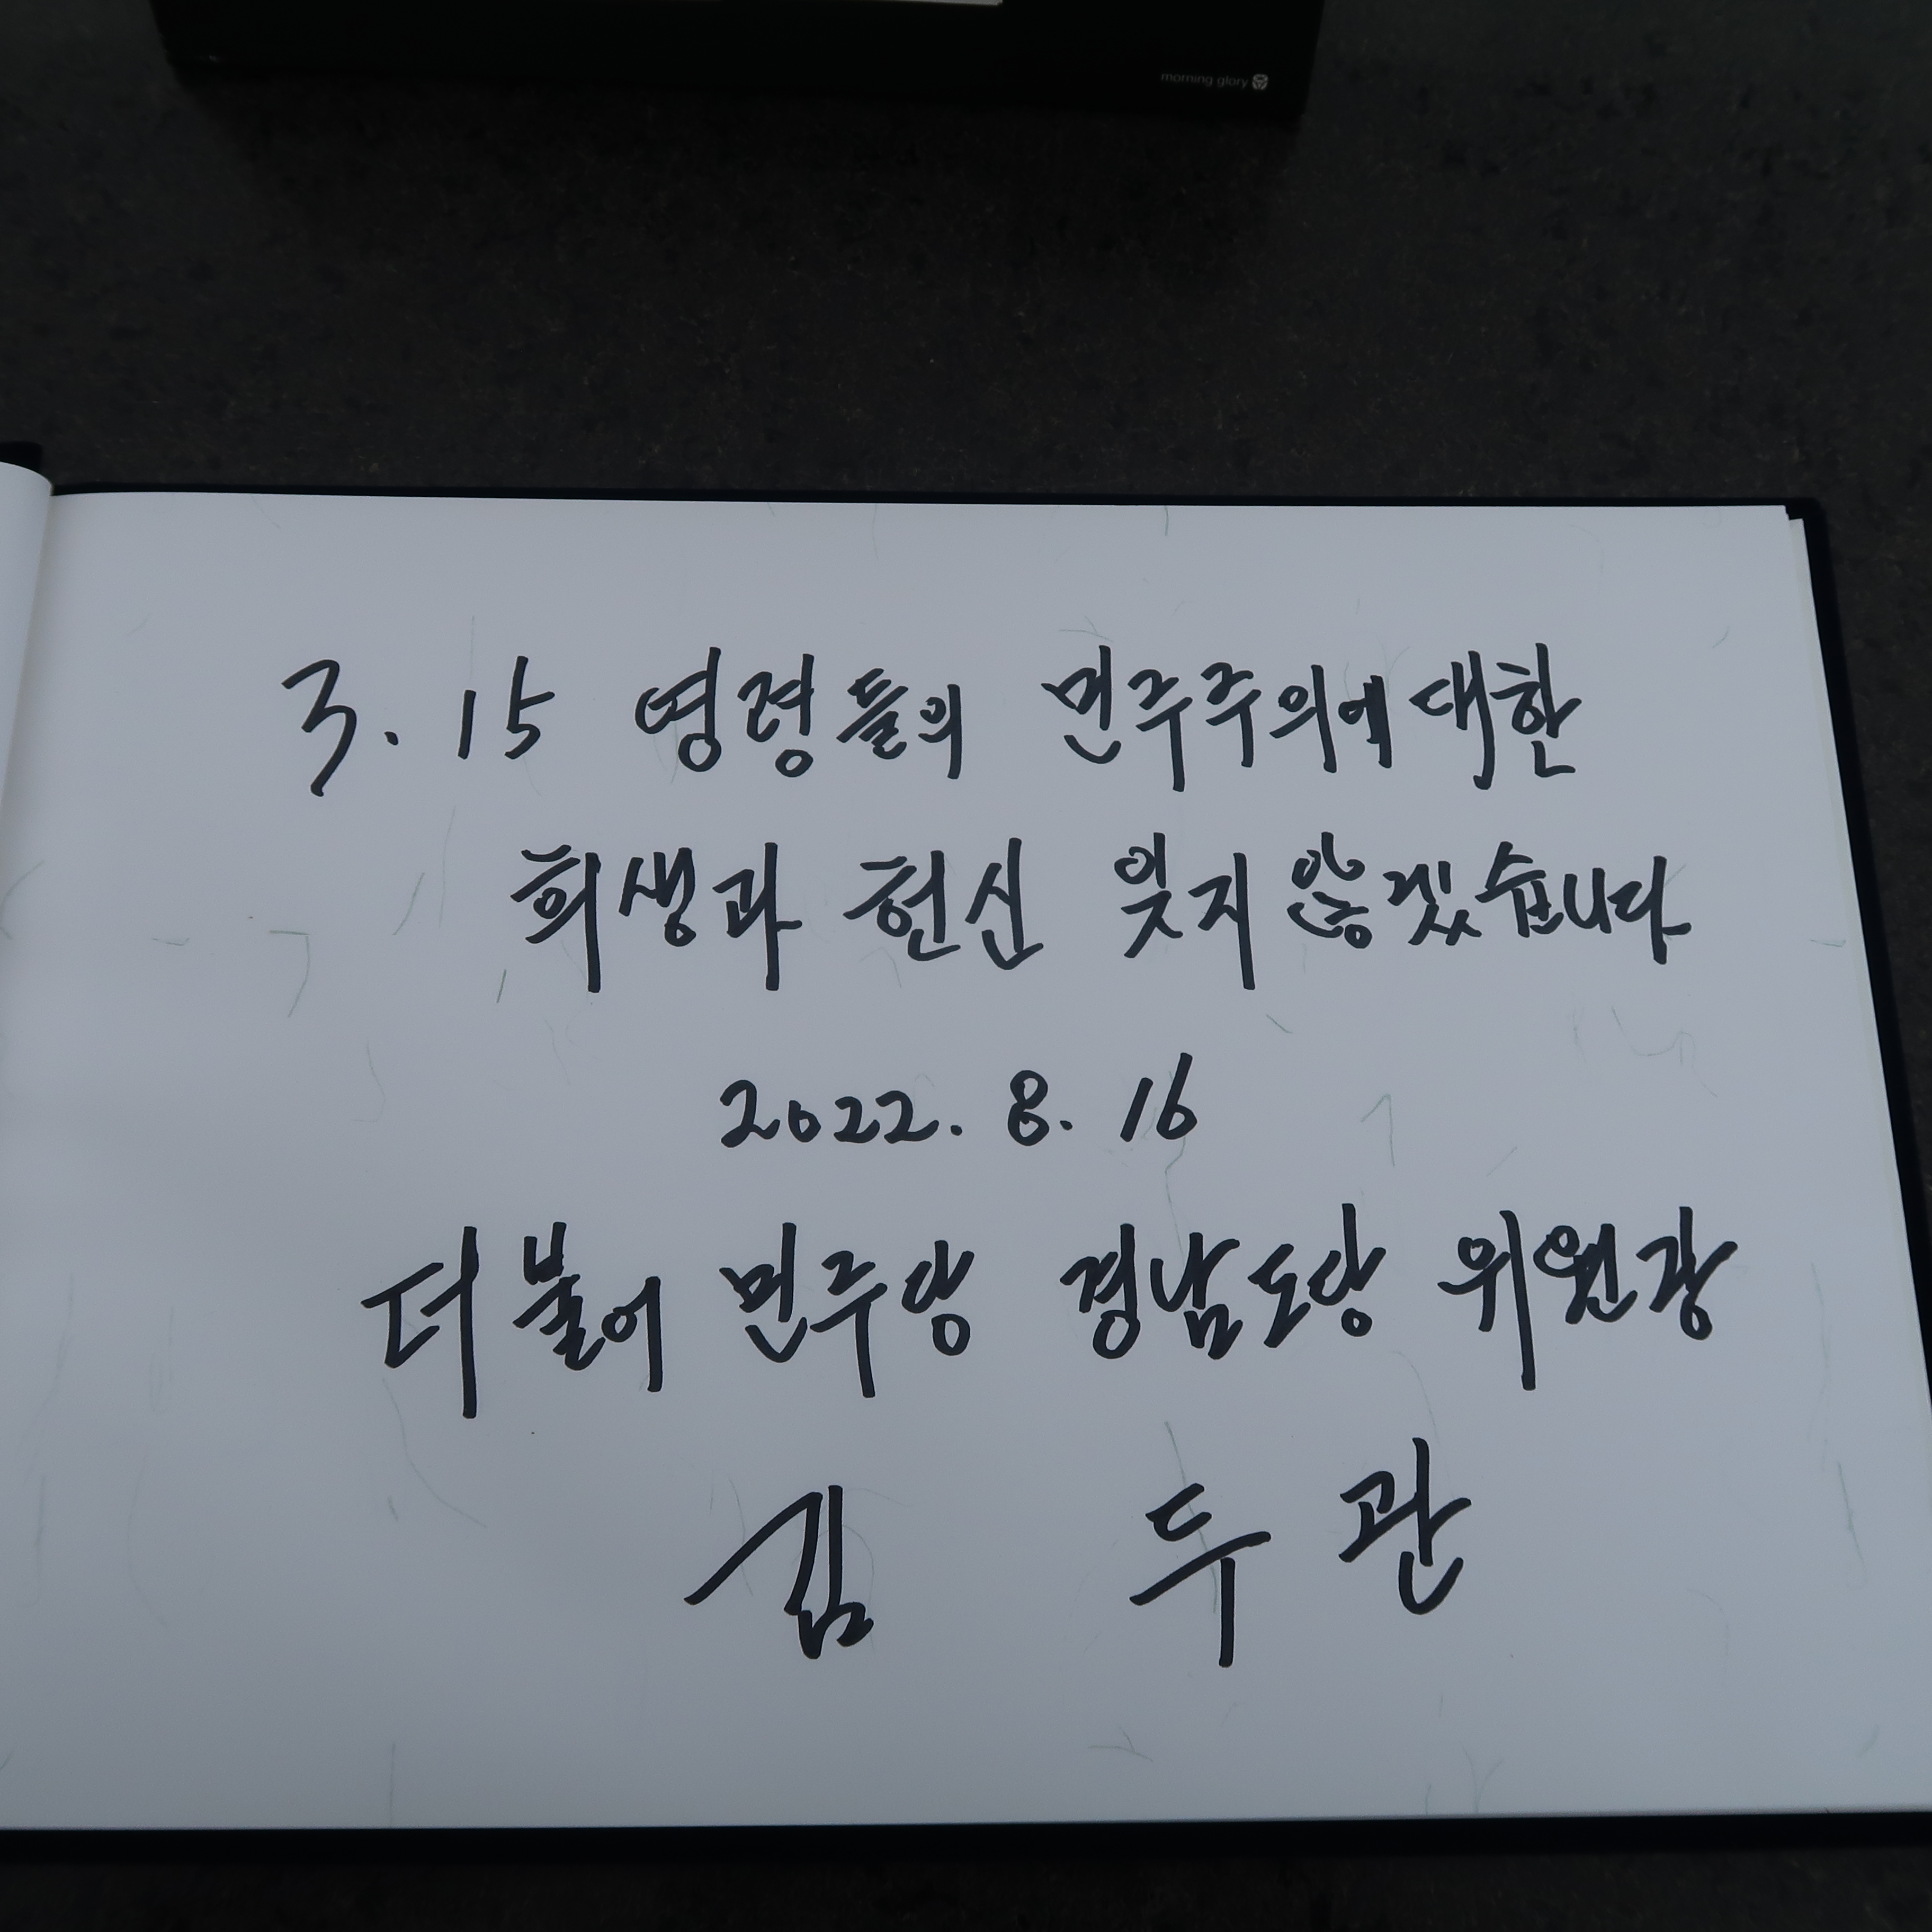 morning glory
3. 15 영령들의 민주주의에 대한
희생과 헌신 잊지 않겠습니다
2022. 8. 16
더불어 민주당 경남도당 위원장
김 두 관